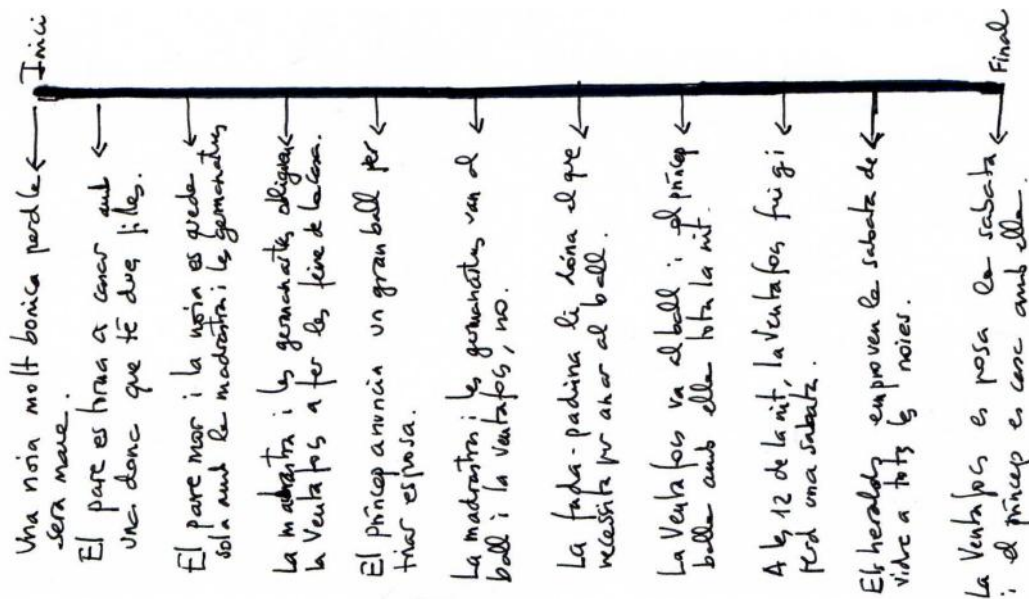 Inici
Una noia molt bonica perd la
seva mare.
El pare es torna a casar amb
una dona que té dues filles.
El pare mor i la noia es queda
sola amb la madrastra i les germanastres
La madrastra i les germanastres obliguen
la Ventafocs a fer les feines de la casa.
El príncep anuncia un gran ball per
triar esposa.
La madrastra i les germanastres van al
ball i la Ventafocs, no.
La fada-padrina li dóna el que
necessita per anar al ball.
La Ventafocs va al ball i el príncep
balla amb ella tota la nit.
A les 12 de la nit, la Ventafocs fuig i
perd una sabata.
Els heralds emproven la sabata de
vidre a totes les noies.
La Ventafocs es posa la sabata
i el príncep es casa amb ella.
Final